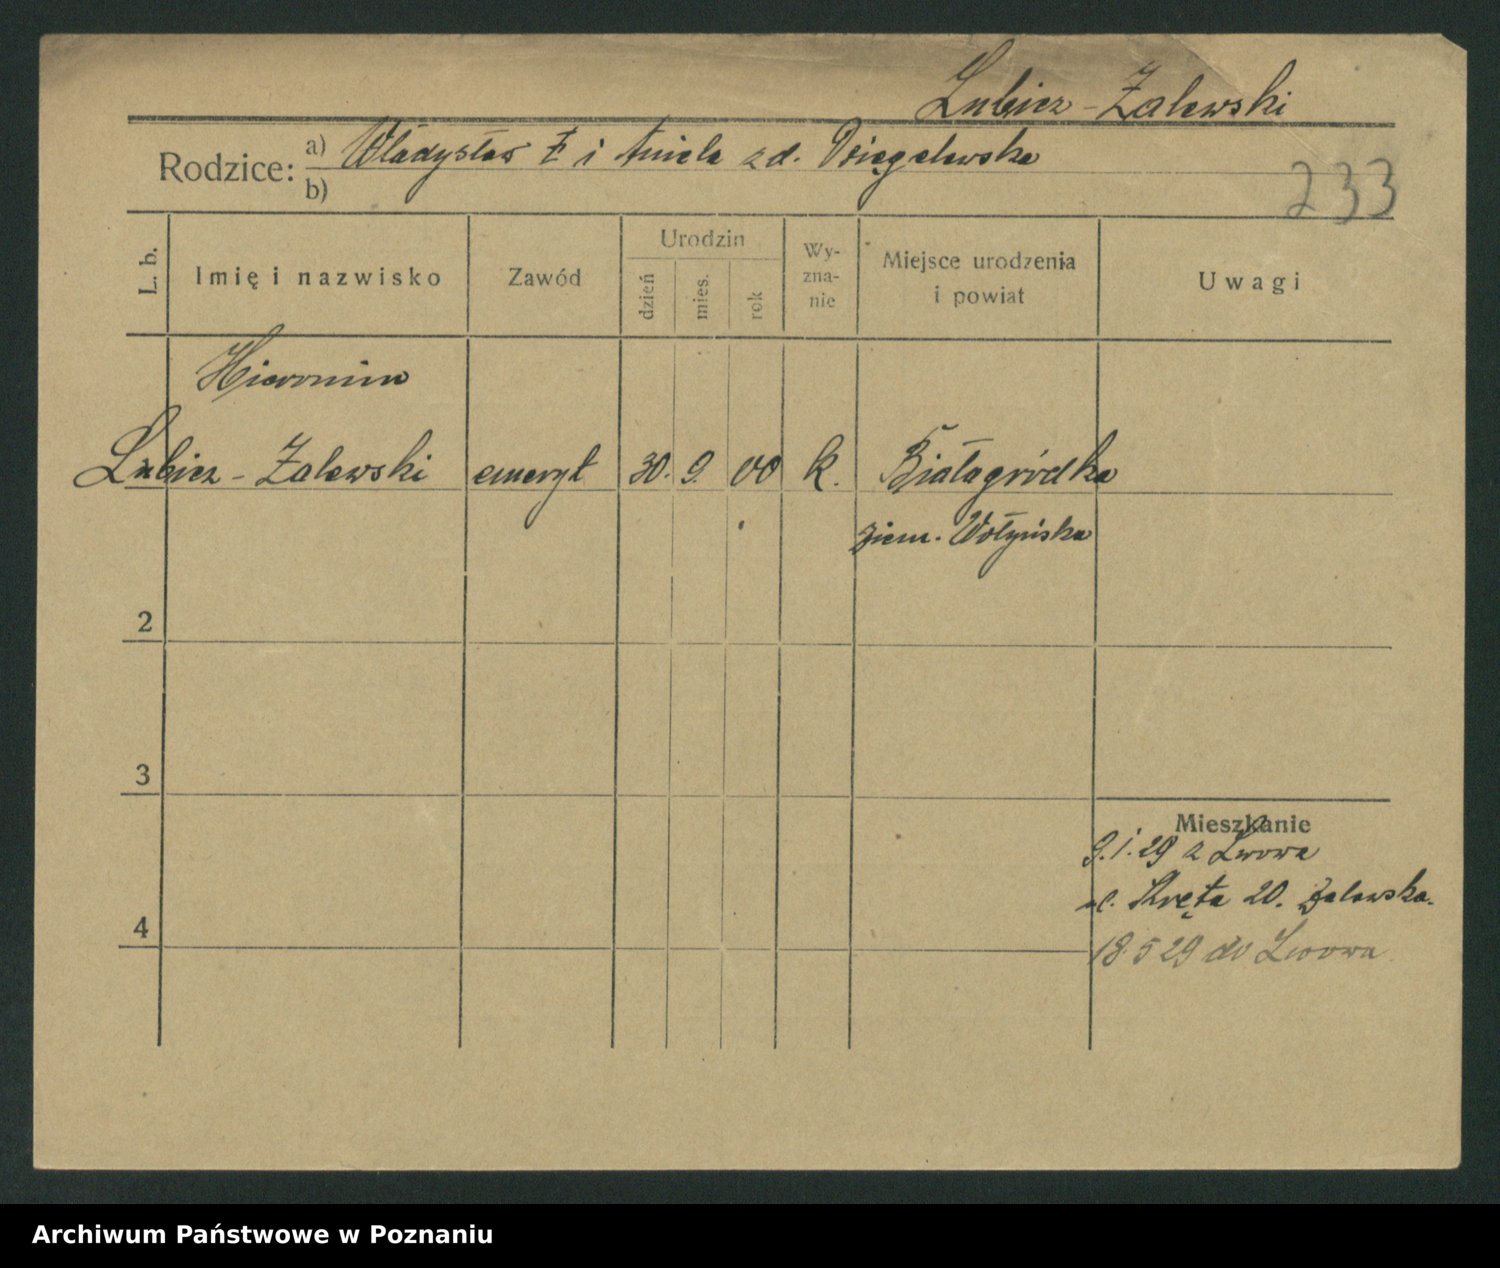 Lubicz-Zalewski
Rodzice: a) Władysław Ł i Aniela z d.
b)
233
L. b.
Imię i nazwisko
Zawód
Urodzin
dzień
mies.
rok
Wy-
zna-
nie
Miejsce urodzenia
i powiat
Uwagi
Hieronim
Lubicz-Zalewski emeryt 30. 9. 00 k. Białagródka
ziem. Wołyńska
2
3
Mieszkanie
9.1.29 z Lwowa
ul. Kręta 20. Zalewska.
4
18.5 29 do Lwowa
Archiwum Państwowe w Poznaniu